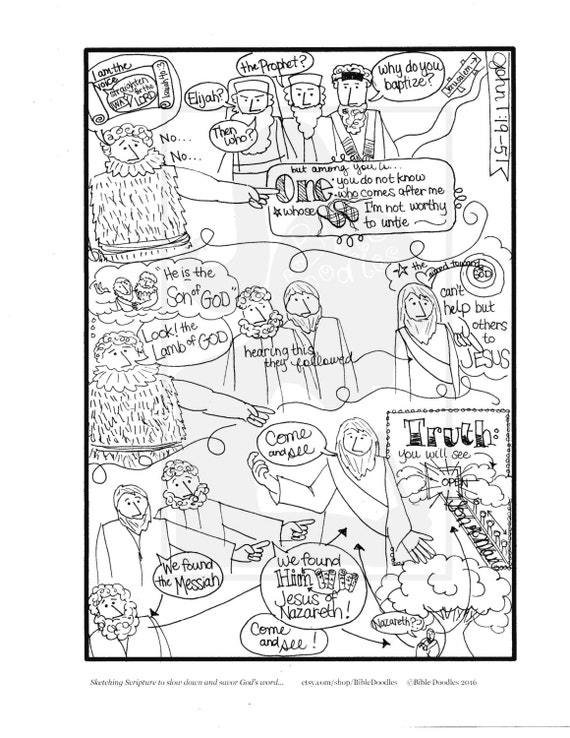 I am the
voice
straighten
for the
WAY LORD
Isaiah 40:3
Elijah?
the Prophet?
Why do you
baptize?
Jerusalem
John 1:19-51
Then
who?
No...
No...
but among you is...
One
you do not know
who comes after me
whose
I'm not worthy
to untie
"He is the
Son of GOD"
Look! the
Lamb of GOD
hearing this
they followed
the
toward
GOD
can't
help but
others
to
JESUS
Come
and see
Truth:
you will see
OPEN
Son of Man
We found
the Messiah
We found
Him
Jesus of
Nazareth!
Come
and see!
Nazareth?
Sketching Scripture to slow down and savor God's word... etsy.com/shop/BibleDoodles ©Bible Doodles 2016